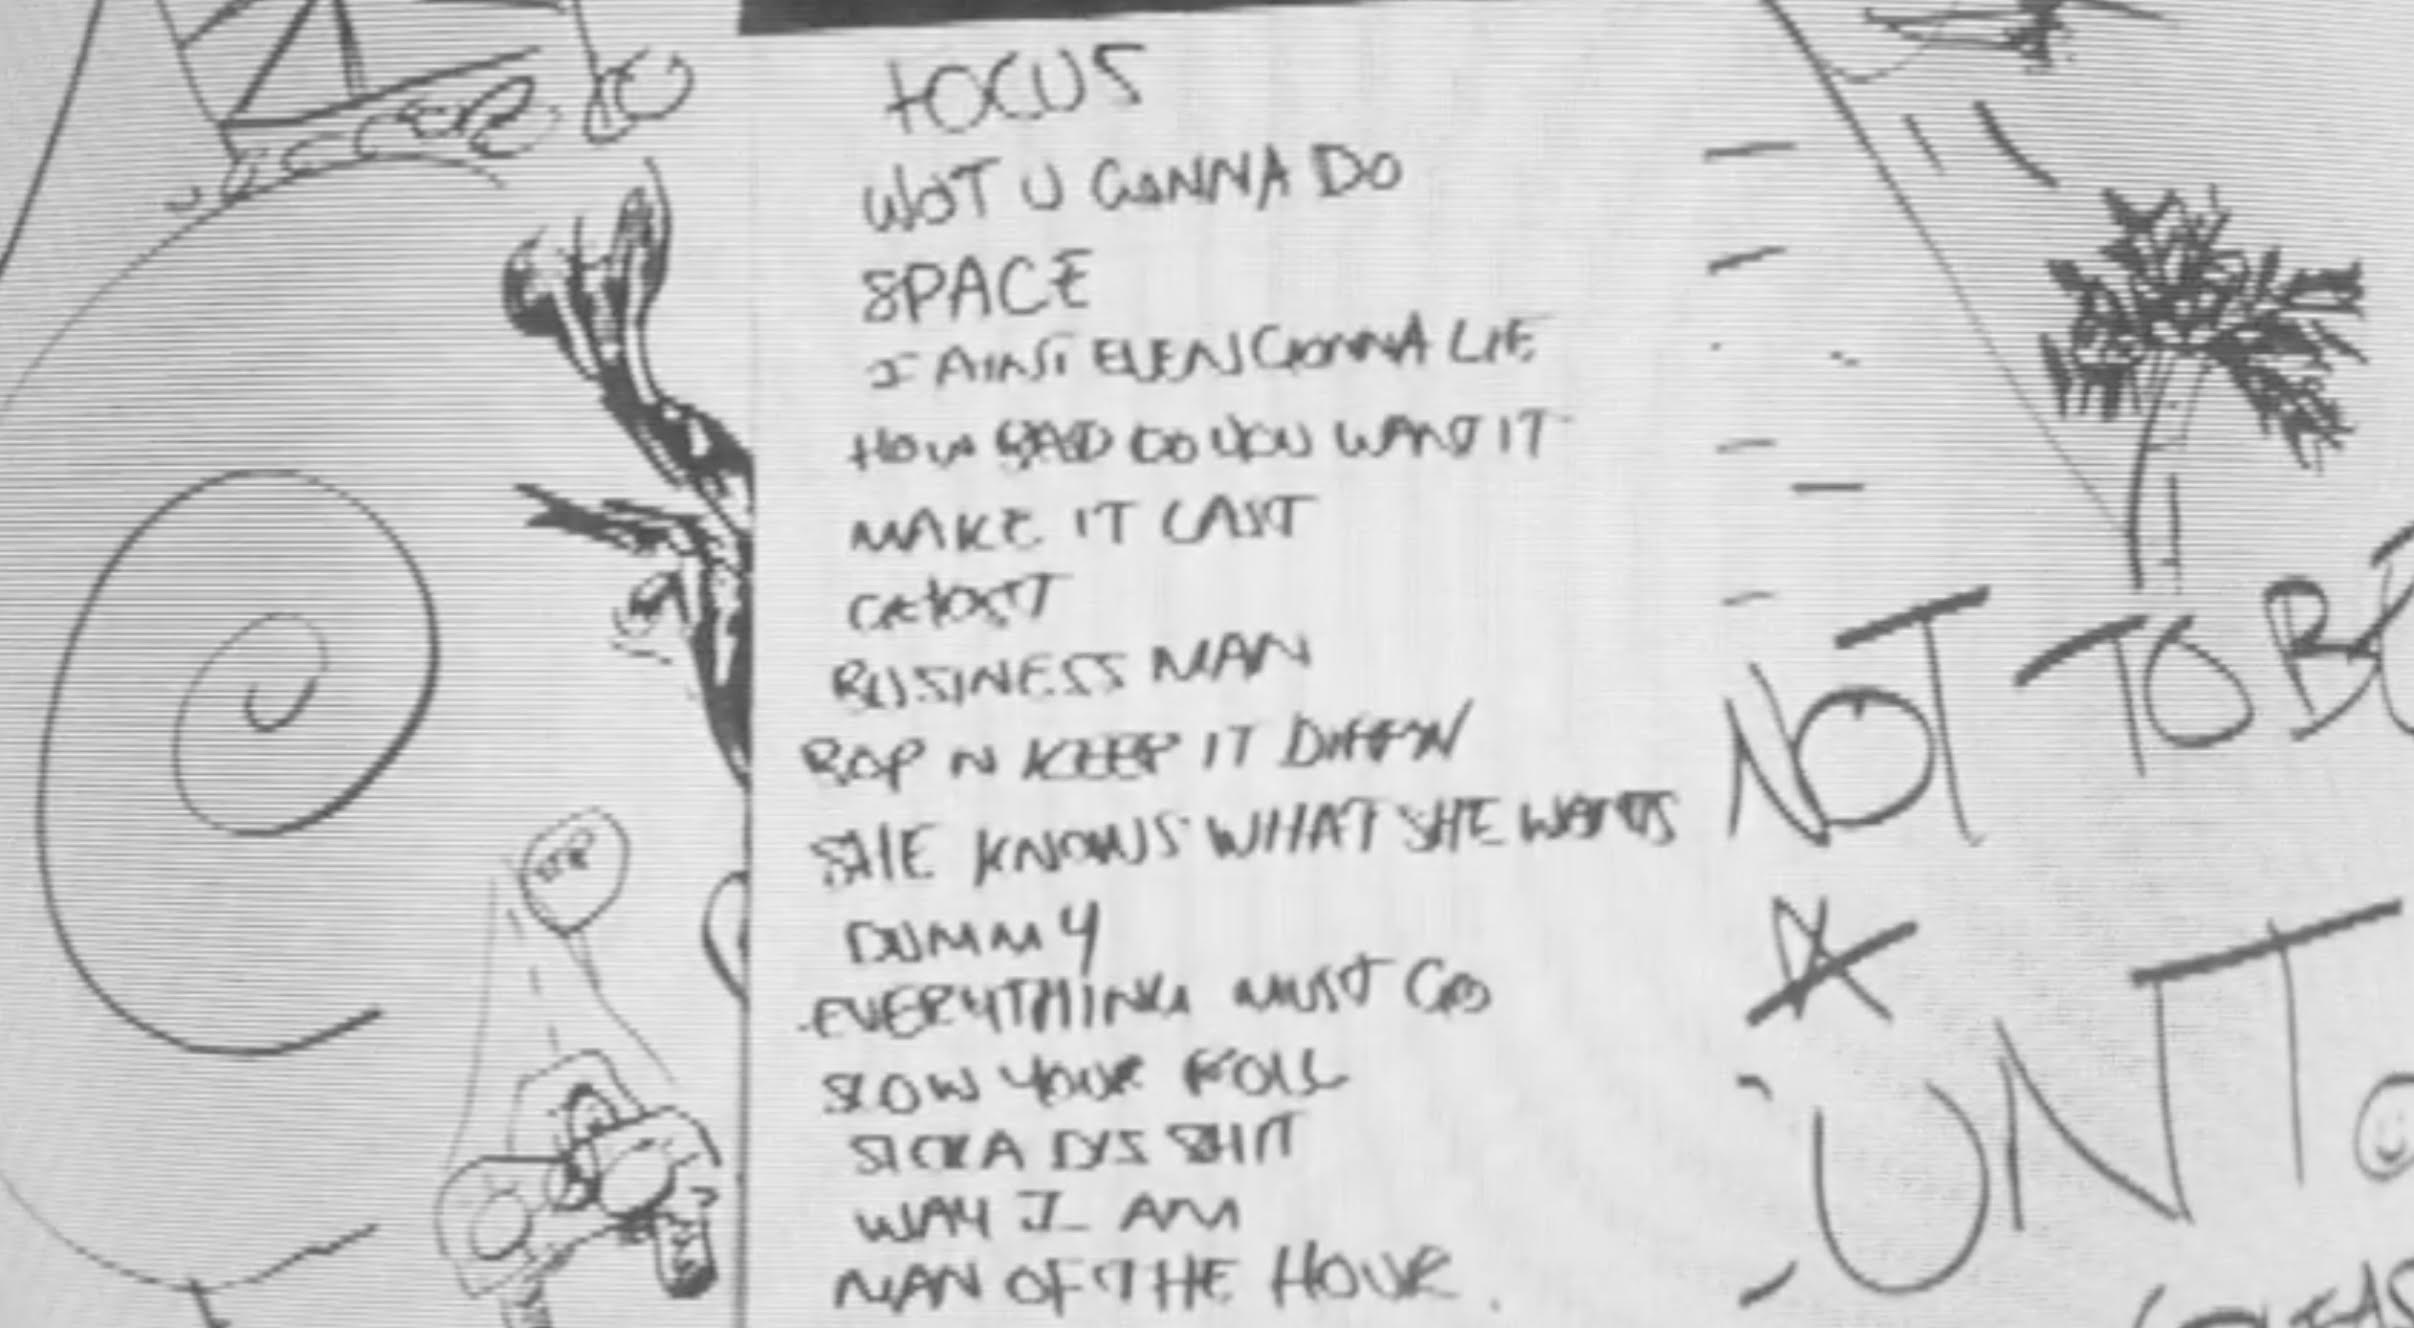 FOCUS
WOT U GONNA DO
SPACE
I AINT EVEN GONNA LIE
HOW BAD DO YOU WANT IT
MAKE IT LAST
GHOST
BUSINESS MAN
BOP N KEEP IT DIPPIN
SHE KNOWS WHAT SHE WANTS
DUMMY
EVERYTHING MUST GO
SLOW YOUR ROLL
SICKA DIS SHIT
WAY I AM
MAN OF THE HOUR.
NOT TO BE
UNT